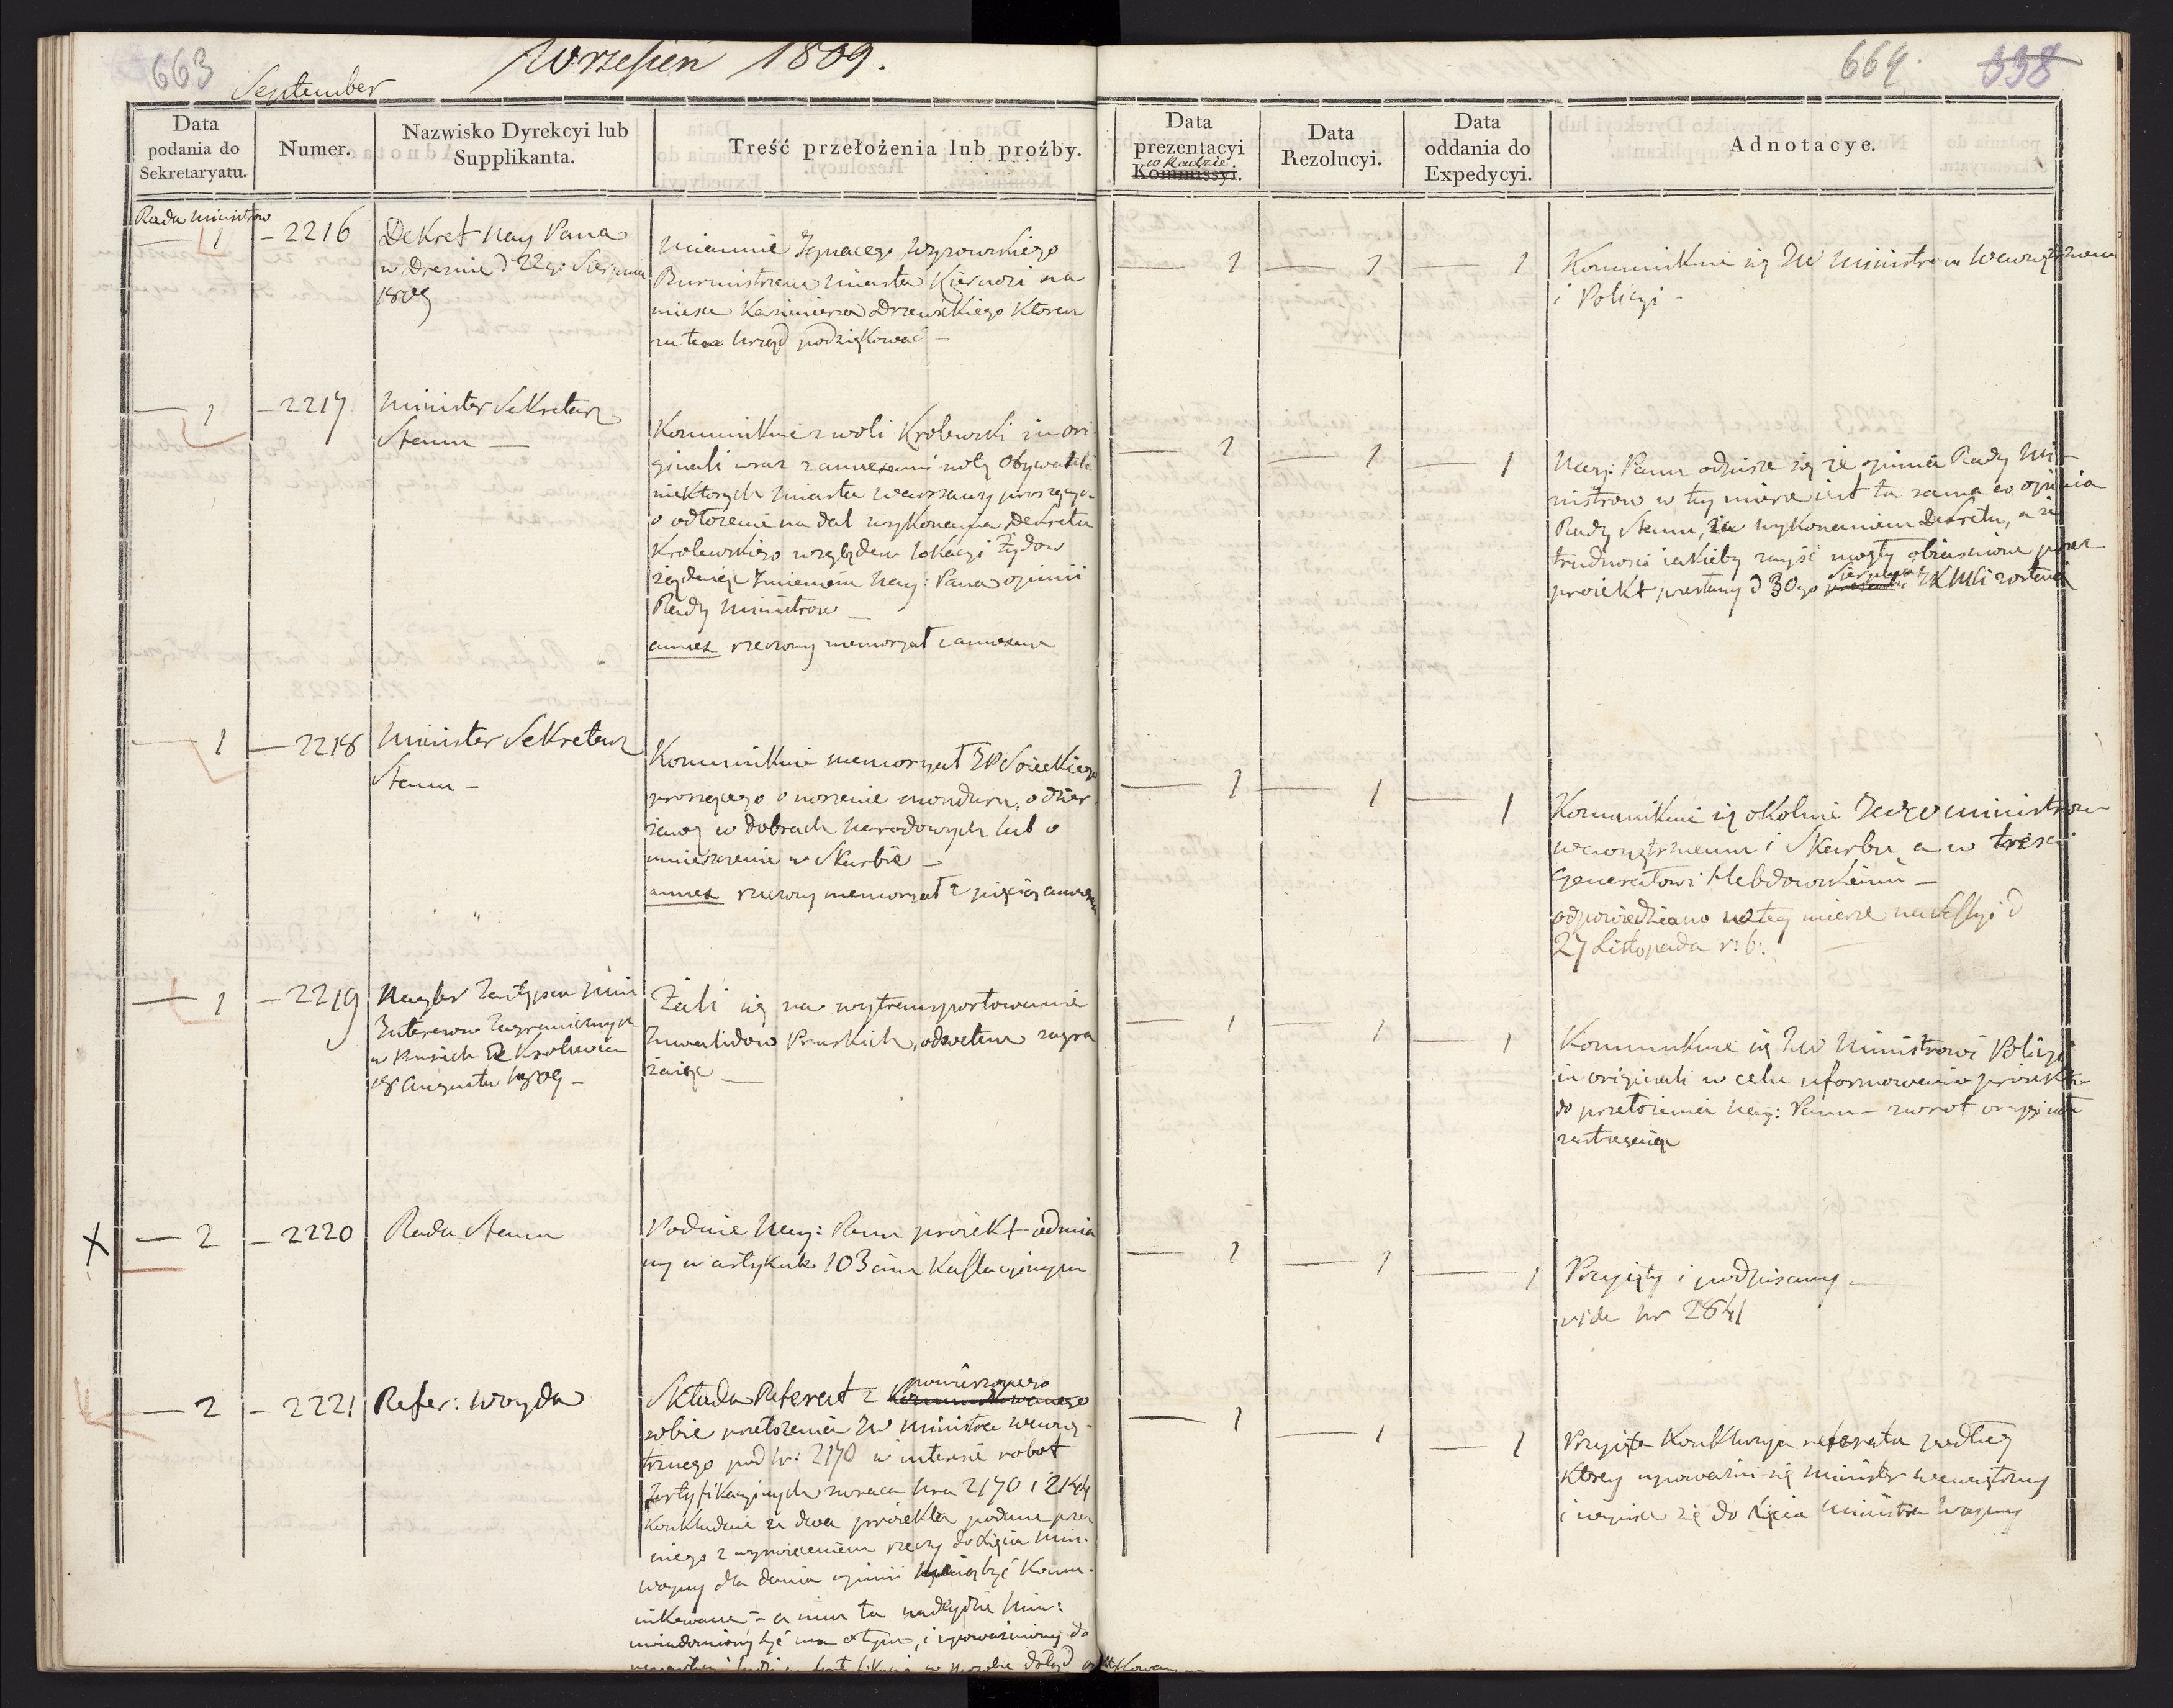 663
Wrzesień 1809.
September
664.
338
Data podania do Sekretaryatu.
Numer.
Nazwisko Dyrekcyi lub Supplikanta.
Treść przełożenia lub proźby.
Data prezentacyi w Radzie Kommissyi.
Data Rezolucyi.
Data oddania do Expedycyi.
Adnotacye.
Rada Ministrow
— 1
— 2216
Dekret Nay Pana
w Dreznie d 22go Sierpnia
1809
Mianuie Ignacego
Burmistrzem Miasta
mieysce Kazimierza
ten Urząd podziękował —
— 1
— 1
— 1
Kommunikuie się JW Ministrom Wewnętrznemu
i Policyi —
— 1
— 2217
Minister Sekretarz
Stanu —
Kommunikuie z woli Krolewski in ori-
ginali wraz z annexami notę Obywateli
niektorych Miasta Warszawy proszących
o odłożenie na dal wykonania Dekretu
Krolewskiego względem lokacyi Żydow
żądaiąc Imieniem Nay: Pana opinii
Rady Ministrow —
annex rzeczony memoryał i annexa
— 1
— 1
— 1
Nay: Panu odpisze się że opinia Rady Mi-
nistrow w tey mierze iest ta sama co opinia
Rady Stanu, za wykonaniem Dekretu, a że
trudności iakieby zayść mogły obiaśnione przez
proiekt przesłany d 30go Sierpnia JKMci zostaną
— 1
— 2218
Minister Sekretarz
Stanu —
Kommunikuie memoryał JP
proszącego o noszenie munduru, o dzier-
żawę w dobrach Narodowych lub o
umieszczenie w Skarbie —
annex rzeczony memoryał z pięcią annexami
— 1
— 1
— 1
Kommunikuie się okolnie Ministrom
Wewnętrznemu i Skarbu a w treści
Generałowi Hebdowskiemu —
odpowiedziano w tey mierze na Sessyi d
27 Listopada r: b:
— 1
— 2219
Nagler Zastępca Min
Interessow Zagranicznych
w Prusiech z Krolewca
18 Augusta 1809 —
Żali się na wytransportowanie
Inwalidow Pruskich, odwetem zagra-
żaiąc —
— 1
— 1
— 1
Kommunikuie się JW Ministrowi Policyi
in originali w celu uformowania proiektu
do przełożenia Nay: Panu — zwrot oryginału
zastrzegaiąc
X
— 2
— 2220
Rada Stanu
Podaie Nay: Panu proiekt odmia-
ny w artykule 103cim Kassacyinym
— 1
— 1
— 1
Przyięty i podpisany —
vide Nr 2841
— 2
— 2221
Refer: Woyda
Składa Referat z powierzonego
sobie przełożenia JW Ministra Wewnę-
trznego pod Nr: 2170 w interesie robot
fortyfikacyinych zwraca Nra 2170 i 2144
Konkluduie że dwa proiekta podane przez
niego z wyświeceniem rzeczy do Xięcia Min:
Woyny dla dania opinii maią być Kommu-
nikowane — a nim ta nadeydzie Min:
uwiadomiony być ma o tym, i upoważniony do
— 1
— 1
— 1
Przyięta Konkluzya referatu podług
ktorey upoważni się Minister Wewnętrzny
i wypisze się do Xięcia Ministra Woyny